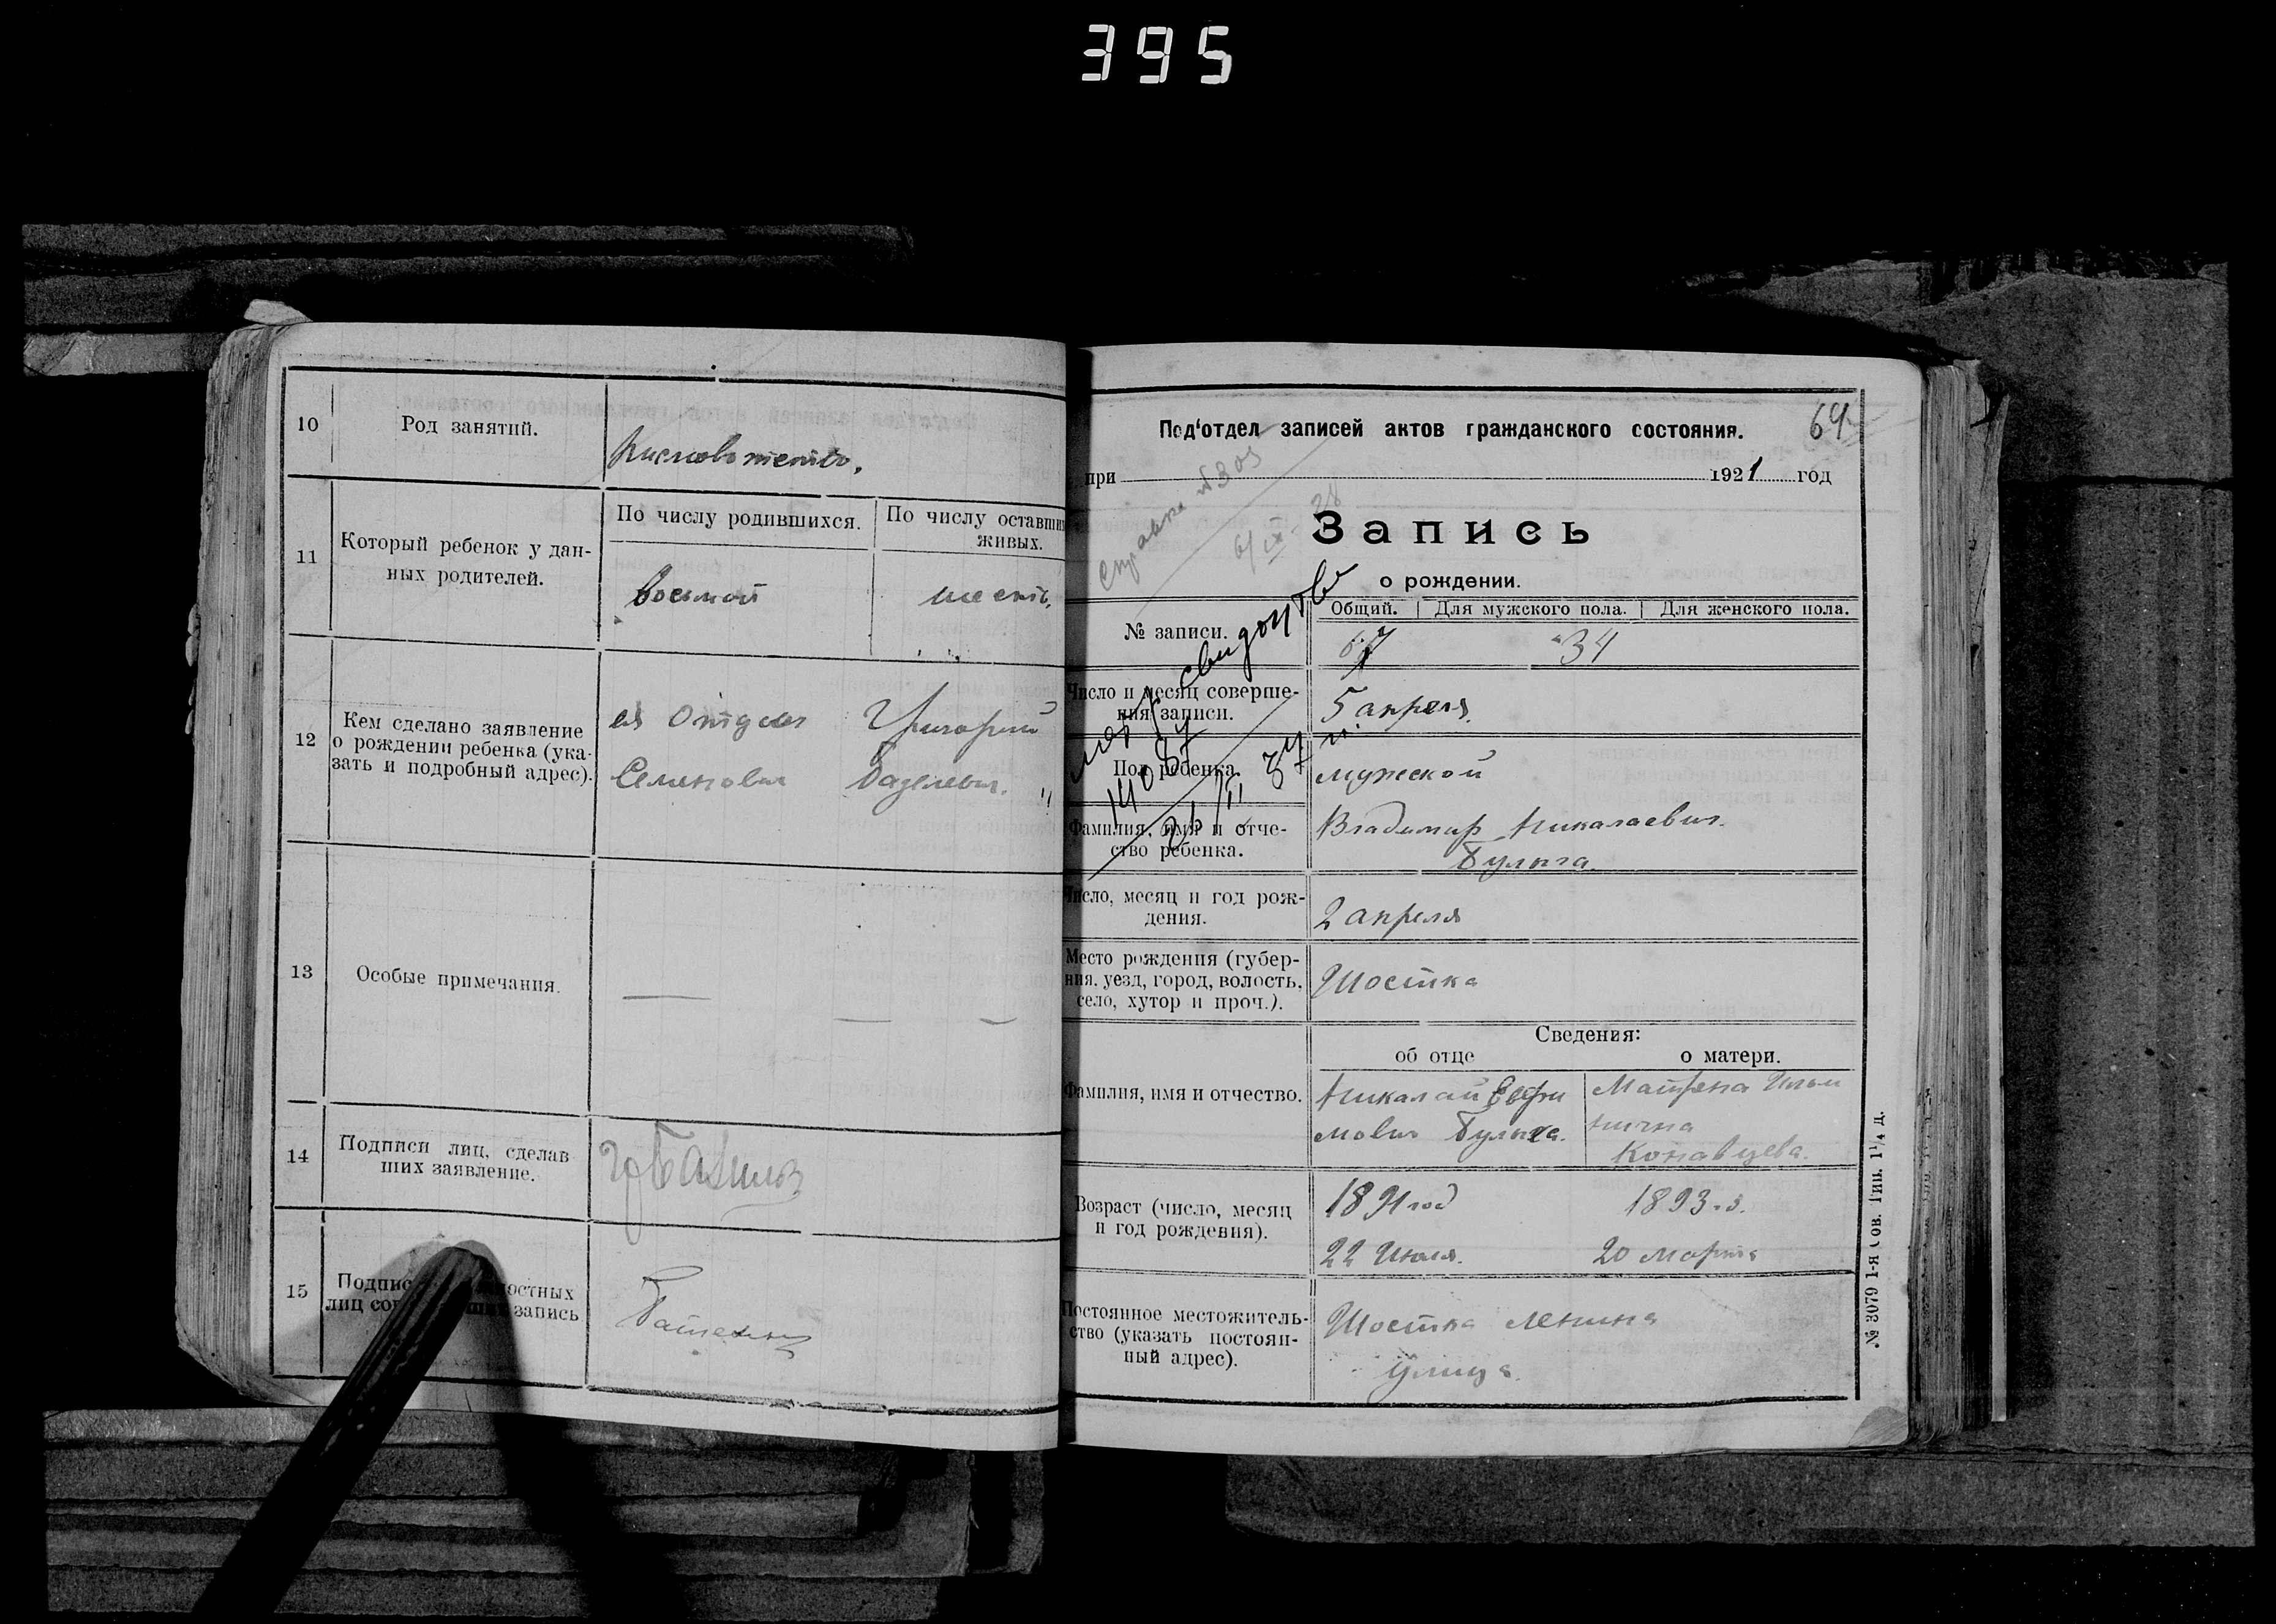 395
10
Род занятий.
11
Который ребенок у дан-
ных родителей.
По числу родившихся.
По числу оставши
живых.
восьмой
шесть.
12
Кем сделано заявление
о рождении ребенка (ука-
зать и подробный адрес).
Григорий
Семенович Базилевич.
13
Особые примечания.
14
Подписи лиц, сделав
ших заявление.
15
Подпис остных
лиц со запись
69
Под‘отдел записей актов гражданского состояния.
при 1921 год
Справка №305
Запись
о рождении.
Общий. Для мужского пола. Для женского пола.
№ записи.
67 34
Число и месяц соверше-
ния записи.
5 апреля.
Пол ребенка.
мужской
Фамилия, имя и отче-
ство ребенка.
Владимир Николаевич
Булыга.
Число, месяц и год рож-
дения.
2 апреля
Место рождения (губер-
ния, уезд, город, волость,
село, хутор и проч.).
Шостка
Сведения:
об отце о матери.
Фамилия, имя и отчество.
Николай Ефи
мович Булыга.
Матрена Ильи
нична
Коновцева.
Возраст (число, месяц
и год рождения).
1891 год
22 Июля.
1893 г.
20 Марта
Постоянное местожитель-
ство (указать постоян-
ный адрес).
Шостка Ленина
улица.
№ 3079 1-я Сов. Тип. 1¼ д.